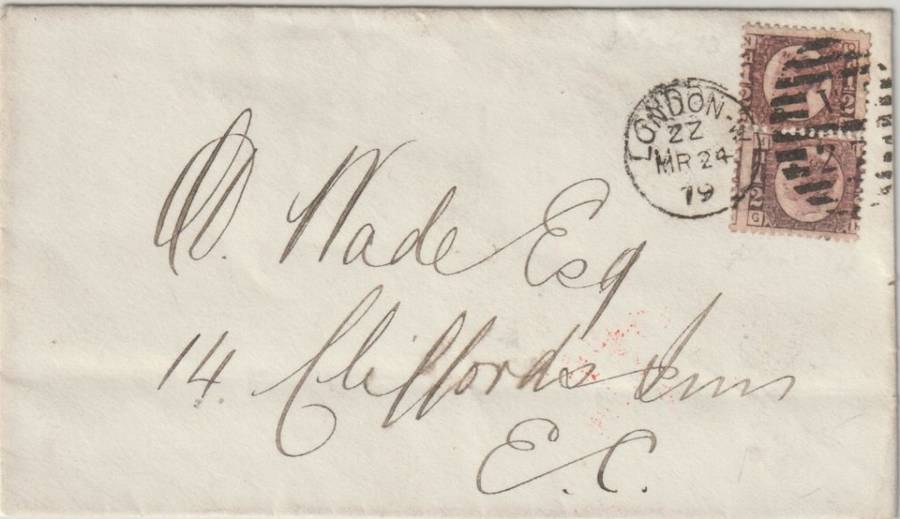 LONDON-W
2Z
MR 24
79
W. Wade Esq
14. Clifford's Inn
E.C.